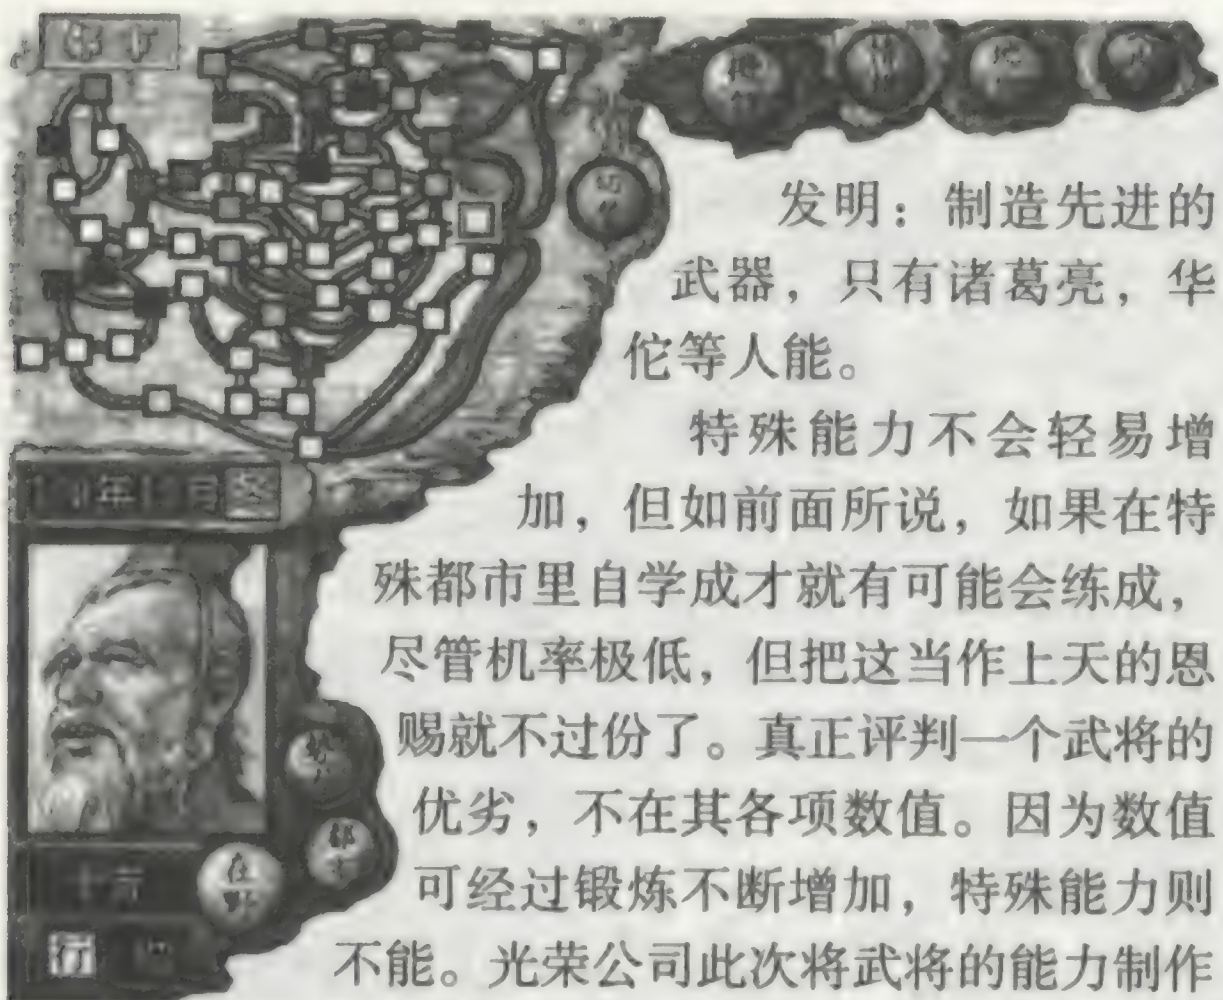 发明：制造先进的
武器，只有诸葛亮，华
佗等人能。
特殊能力不会轻易增
加，但如前面所说，如果在特
殊都市里自学成才就有可能会练成，
尽管机率极低，但把这当作上天的恩
赐就不过份了。真正评判一个武将的
优劣，不在其各项数值。因为数值
可经过锻炼不断增加，特殊能力则
不能。光荣公司此次将武将的能力制作
年
月
冬
都市
在野
行